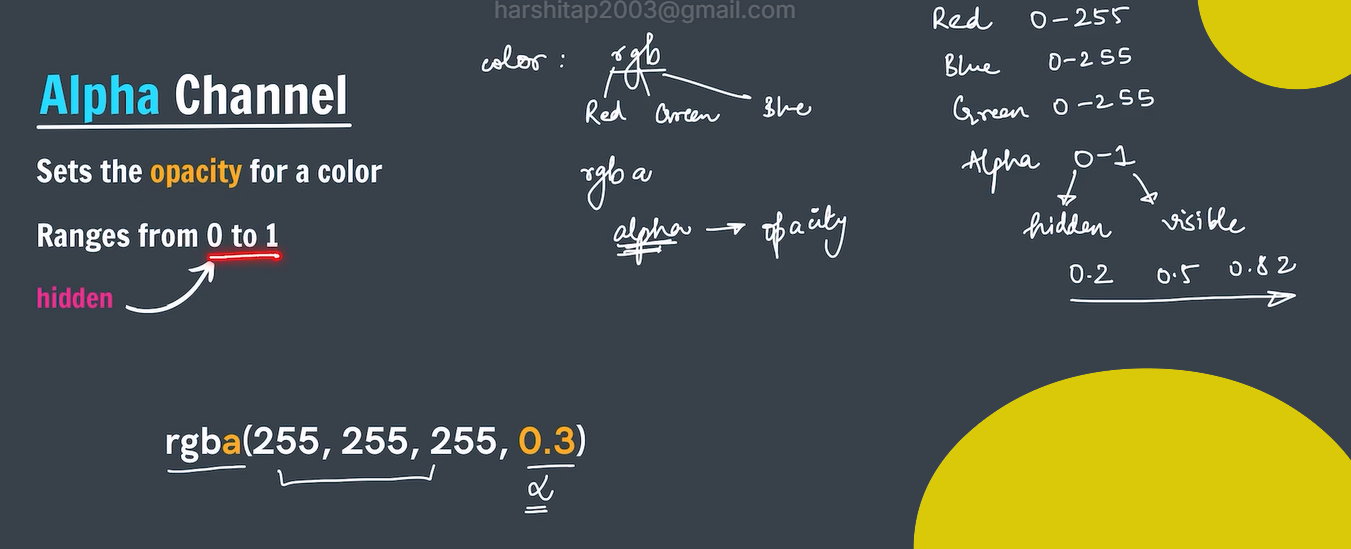 harshitap2003@gmail.com
Alpha Channel
Sets the opacity for a color
Ranges from 0 to 1
hidden
color : rgb
Red Green Blue
rgb a
alpha → opacity
Red 0-255
Blue 0-255
Green 0-255
Alpha 0-1
hidden visible
0.2 0.5 0.82
rgba(255, 255, 255, 0.3)
α